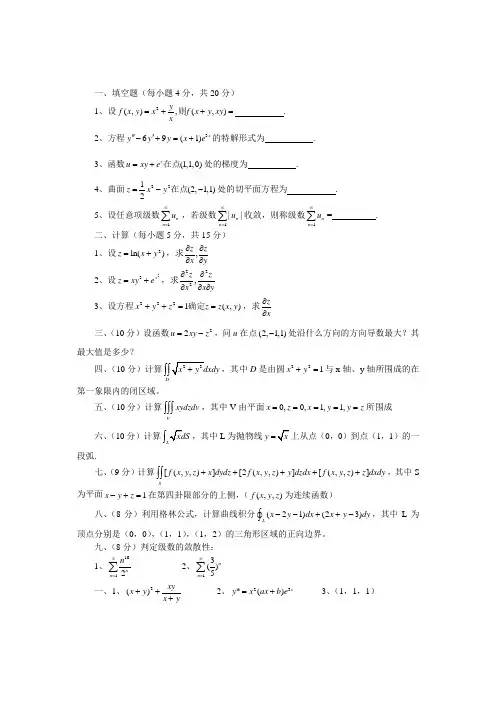 一、填空题（每小题 4 分，共 20 分）
1、设 f(x, y) = x² + y/x, 则 f(x + y, xy) = .
2、方程 y″ − 6y′ + 9y = (x + 1)e³ˣ 的特解形式为 .
3、函数 u = xy + eᶻ 在点(1,1,0) 处的梯度为 .
4、曲面 z = 1/2 x² − y² 在点(2, −1,1) 处的切平面方程为 .
5、设任意项级数 ∑_{n=1}^{∞} uₙ ，若级数 ∑_{n=1}^{∞} | uₙ | 收敛，则称级数 ∑_{n=1}^{∞} uₙ = .
二、计算（每小题 5 分，共 15 分）
1、设 z = ln(x + y²) ，求 ∂z/∂x , ∂z/∂y
2、设 z = xy³ + e^{x²} ，求 ∂²z/∂x² , ∂²z/∂x∂y
3、设方程 x² + y² + z² = 1确定z = z(x, y) ，求 ∂z/∂x
三、（10 分）设函数 u = 2xy − z² ，问 u 在点 (2, −1,1) 处沿什么方向的方向导数最大？其
最大值是多少？
四、（10 分）计算 ∬_D √(x² + y²)dxdy ，其中 D 是由圆 x² + y² = 1 与 x 轴、y 轴所围成的在
第一象限内的闭区域。
五、（10 分）计算 ∭_V xydzdv ，其中 V 由平面 x = 0, z = 0, x = 1, y = 1, y = z 所围成
六、（10 分）计算 ∫_L √x dS ，其中 L 为抛物线 y = √x 上从点（0，0）到点（1，1）的一
段弧.
七、（9 分）计算 ∬_S [ f(x, y, z) + x]dydz + [2 f(x, y, z) + y]dzdx + [ f(x, y, z) + z]dxdy ，其中 S
为平面 x − y + z = 1 在第四卦限部分的上侧，（ f(x, y, z) 为连续函数）
八、（8 分）利用格林公式，计算曲线积分 ∮_L (x − 2y − 1)dx + (2x + y − 3)dy ，其中 L 为
顶点分别是（0，0），（1，1），（1，2）的三角形区域的正向边界。
九、（8 分）判定级数的敛散性：
1、 ∑_{n=1}^{∞} n¹⁰/2ⁿ 2、 ∑_{n=1}^{∞} (3/5)ⁿ
一、1、 (x + y)² + xy/(x + y) 2、 y* = x²(ax + b)e³ˣ 3、（1，1，1）